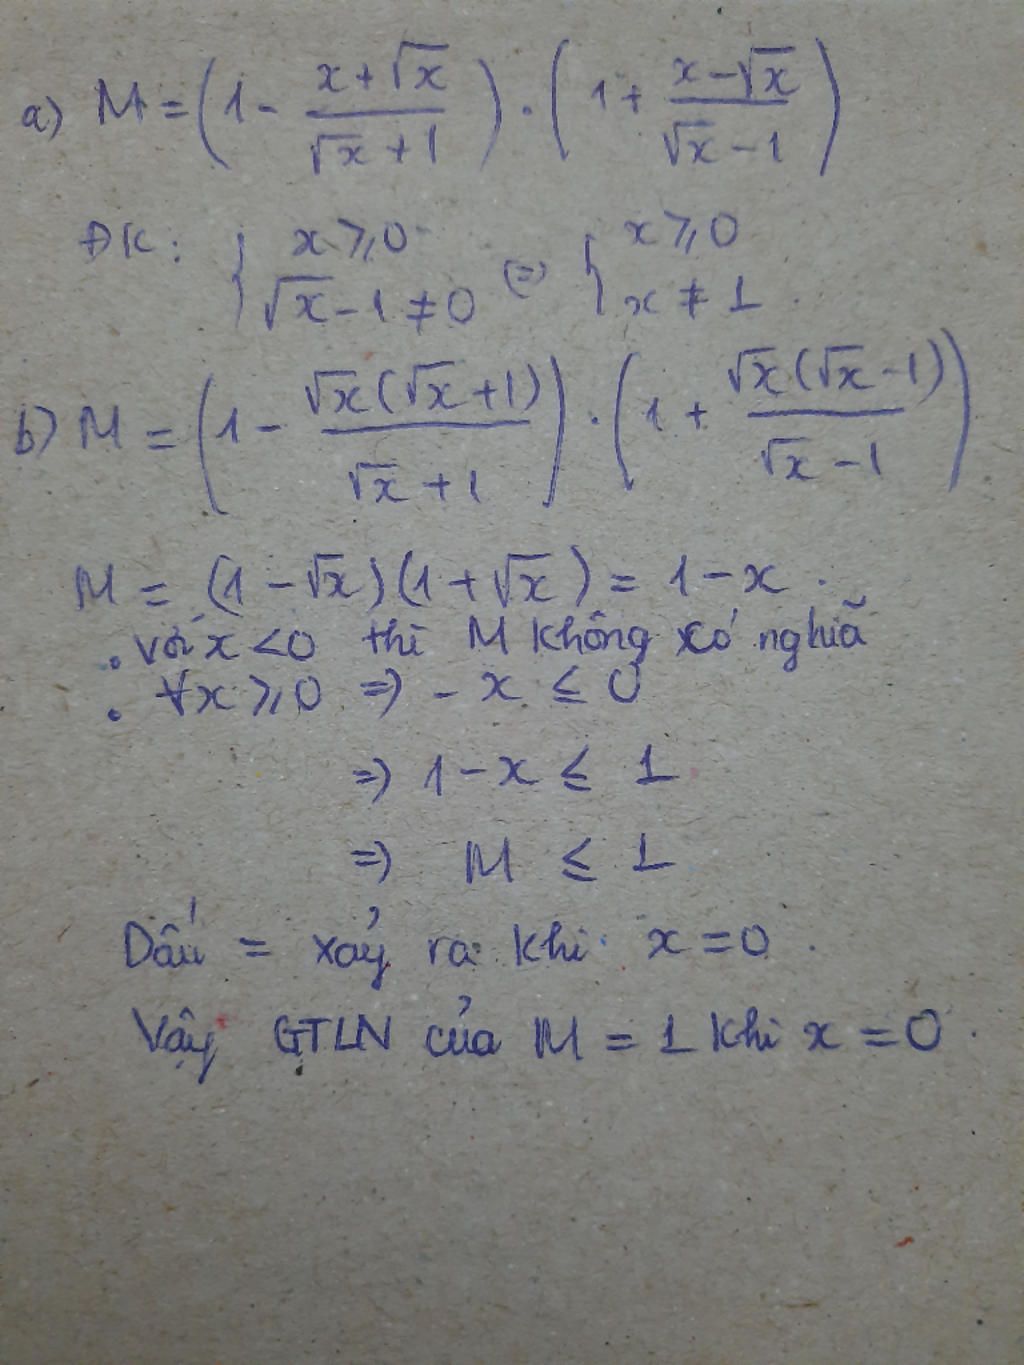 a) M = (1 - (x+√x)/(√x+1)) . (1 + (x-√x)/(√x-1))
ĐK: { x ≥ 0 (=) { x ≥ 0
√x - 1 ≠ 0 x ≠ 1 .
b) M = (1 - √x(√x+1)/(√x+1)) . (1 + √x(√x-1)/(√x-1))
M = (1-√x)(1+√x) = 1-x .
. với x < 0 thì M không có nghĩa
. ∀x ≥ 0 => -x ≤ 0
=> 1-x ≤ 1
=> M ≤ 1
Dấu = xảy ra khi x = 0 .
Vậy GTLN của M = 1 khi x = 0 .